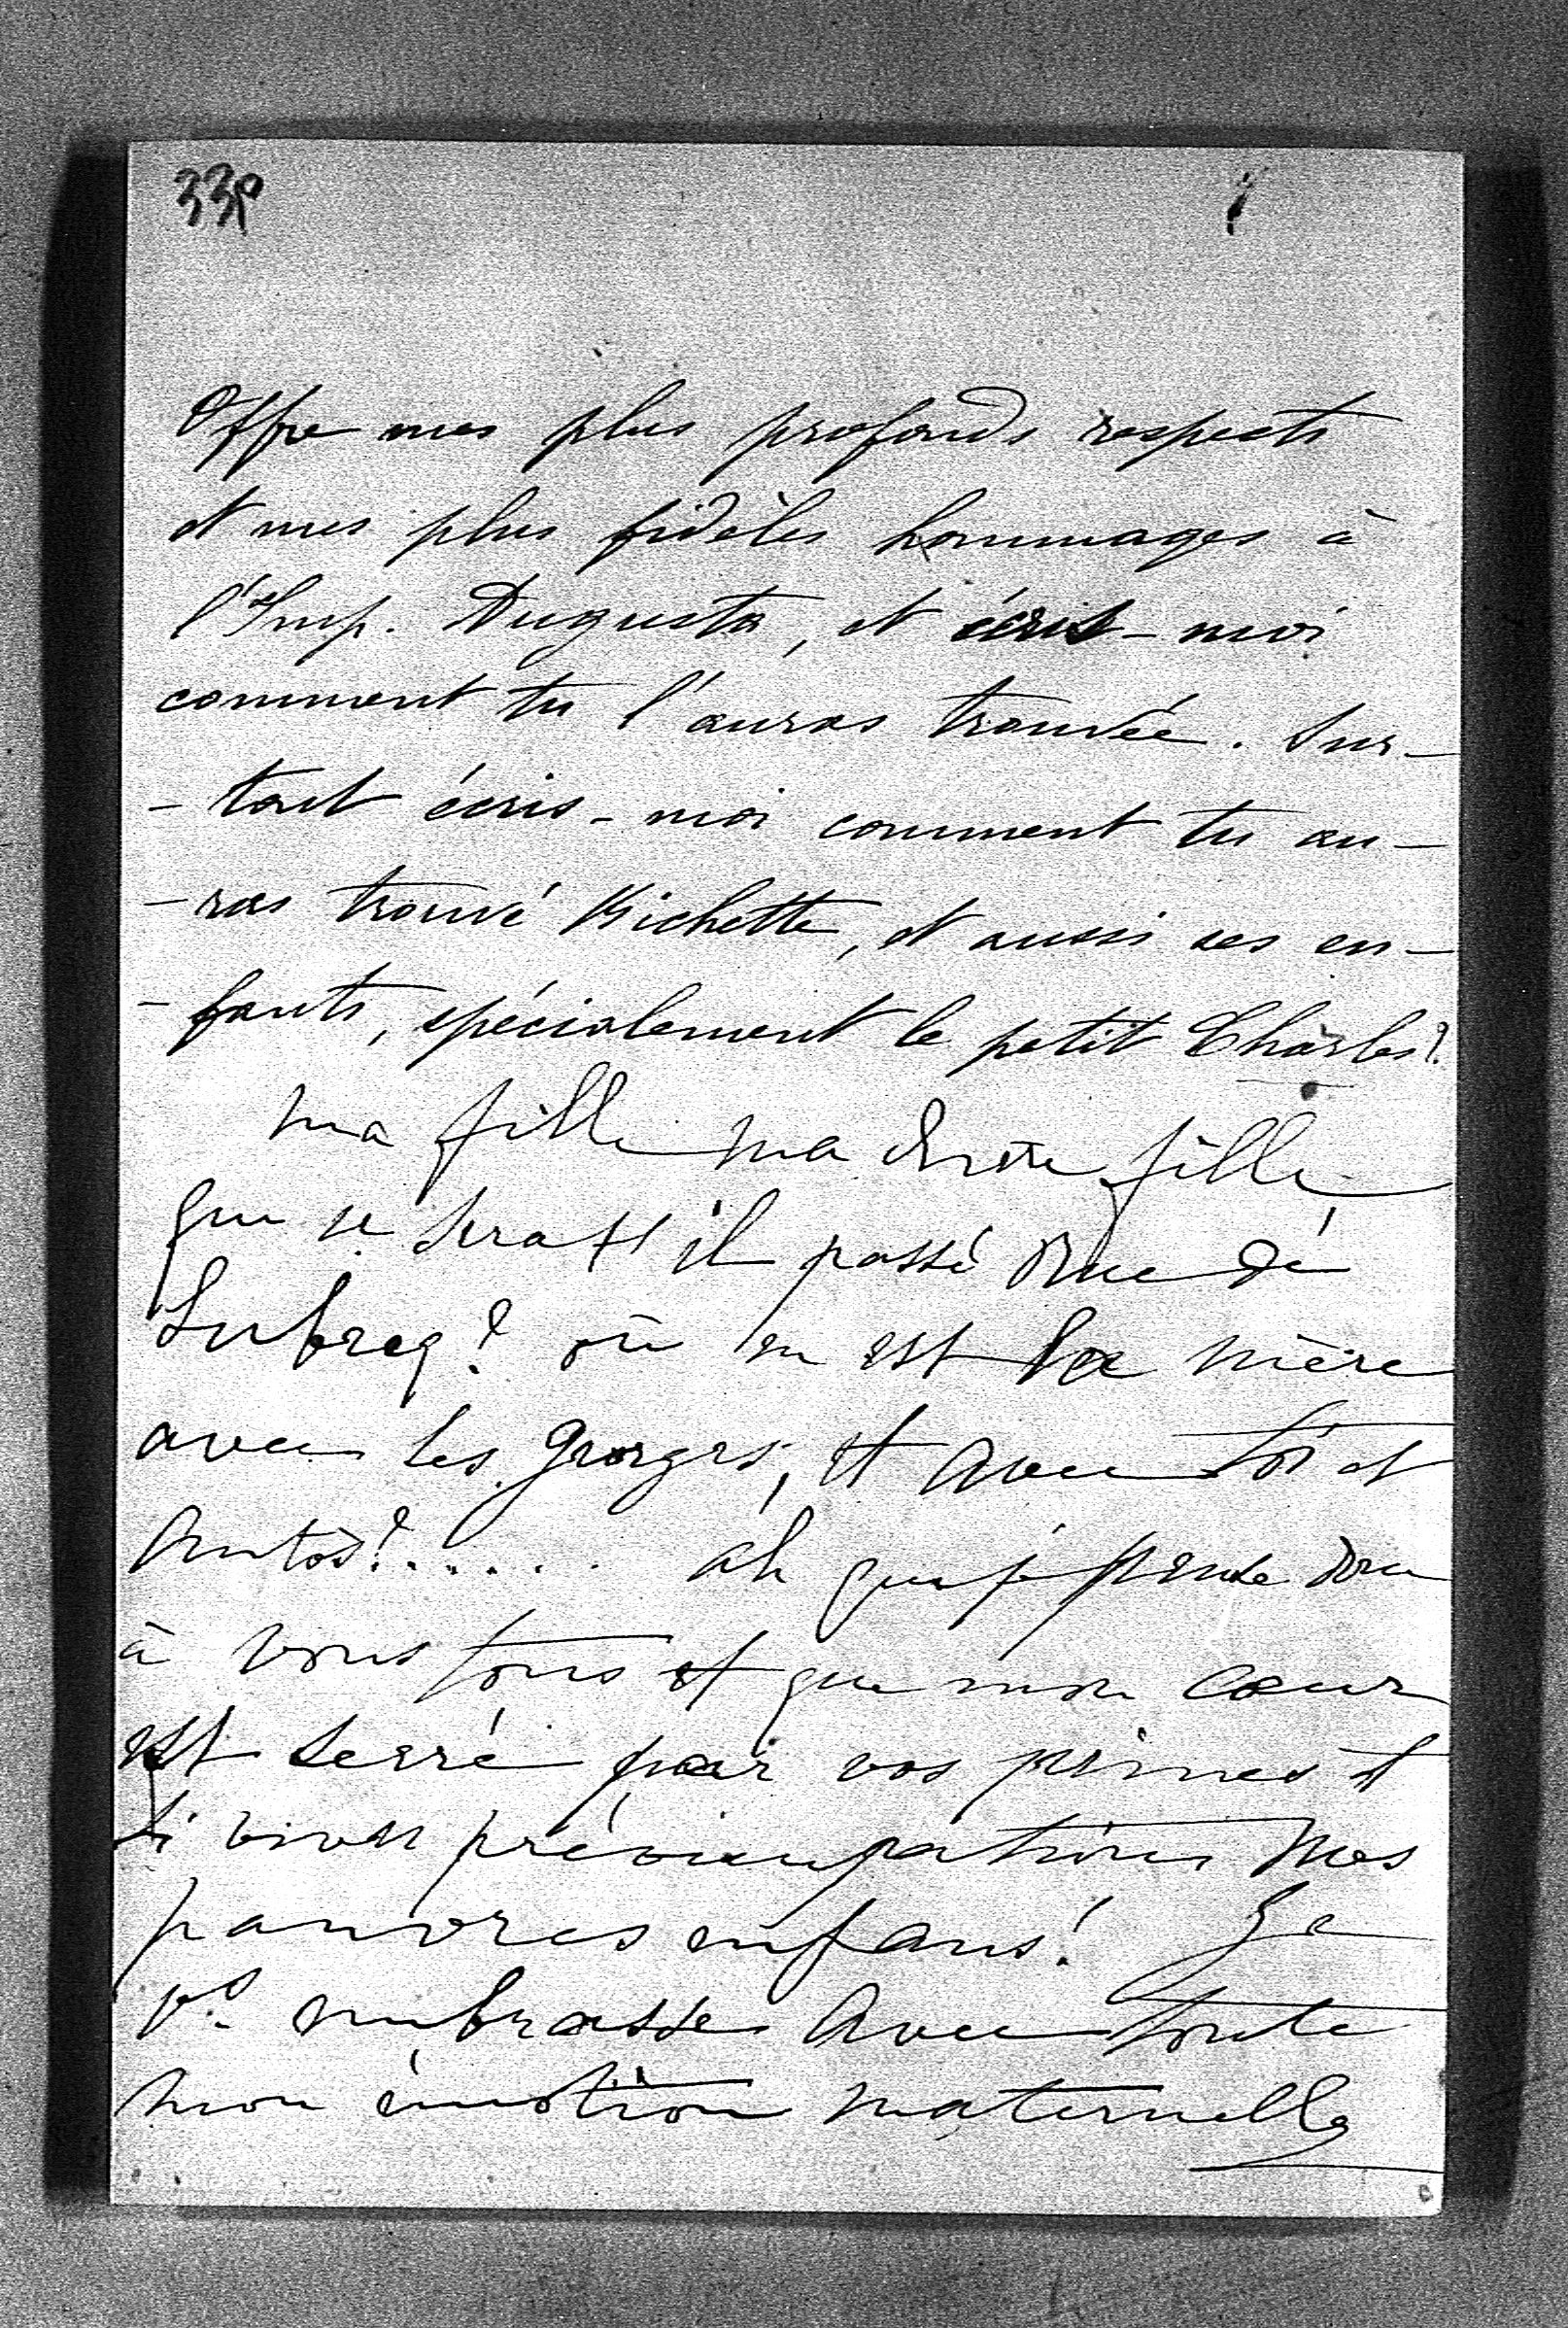 339
Offre mes plus profonds respects
et mes plus fidèles hommages à
l'Imp. Augusta, et écris-moi
comment tu l'auras trouvée. Sur-
-tout écris-moi comment tu au-
-ras trouvé Bichette, et aussi ses en-
-fants, spécialement le petit Charles?
ma fille ma chère fille
que se sera t'il passé Duc de
Sabreg? où en est la mère
avec les Georges, et avec toi et
Antos?...... ah que je pense donc
à vous tous et que mon cœur
est serré par vos peines et
si vives préoccupations mes
pauvres enfans! Je
vs embrasse avec toute
mon émotion maternelle